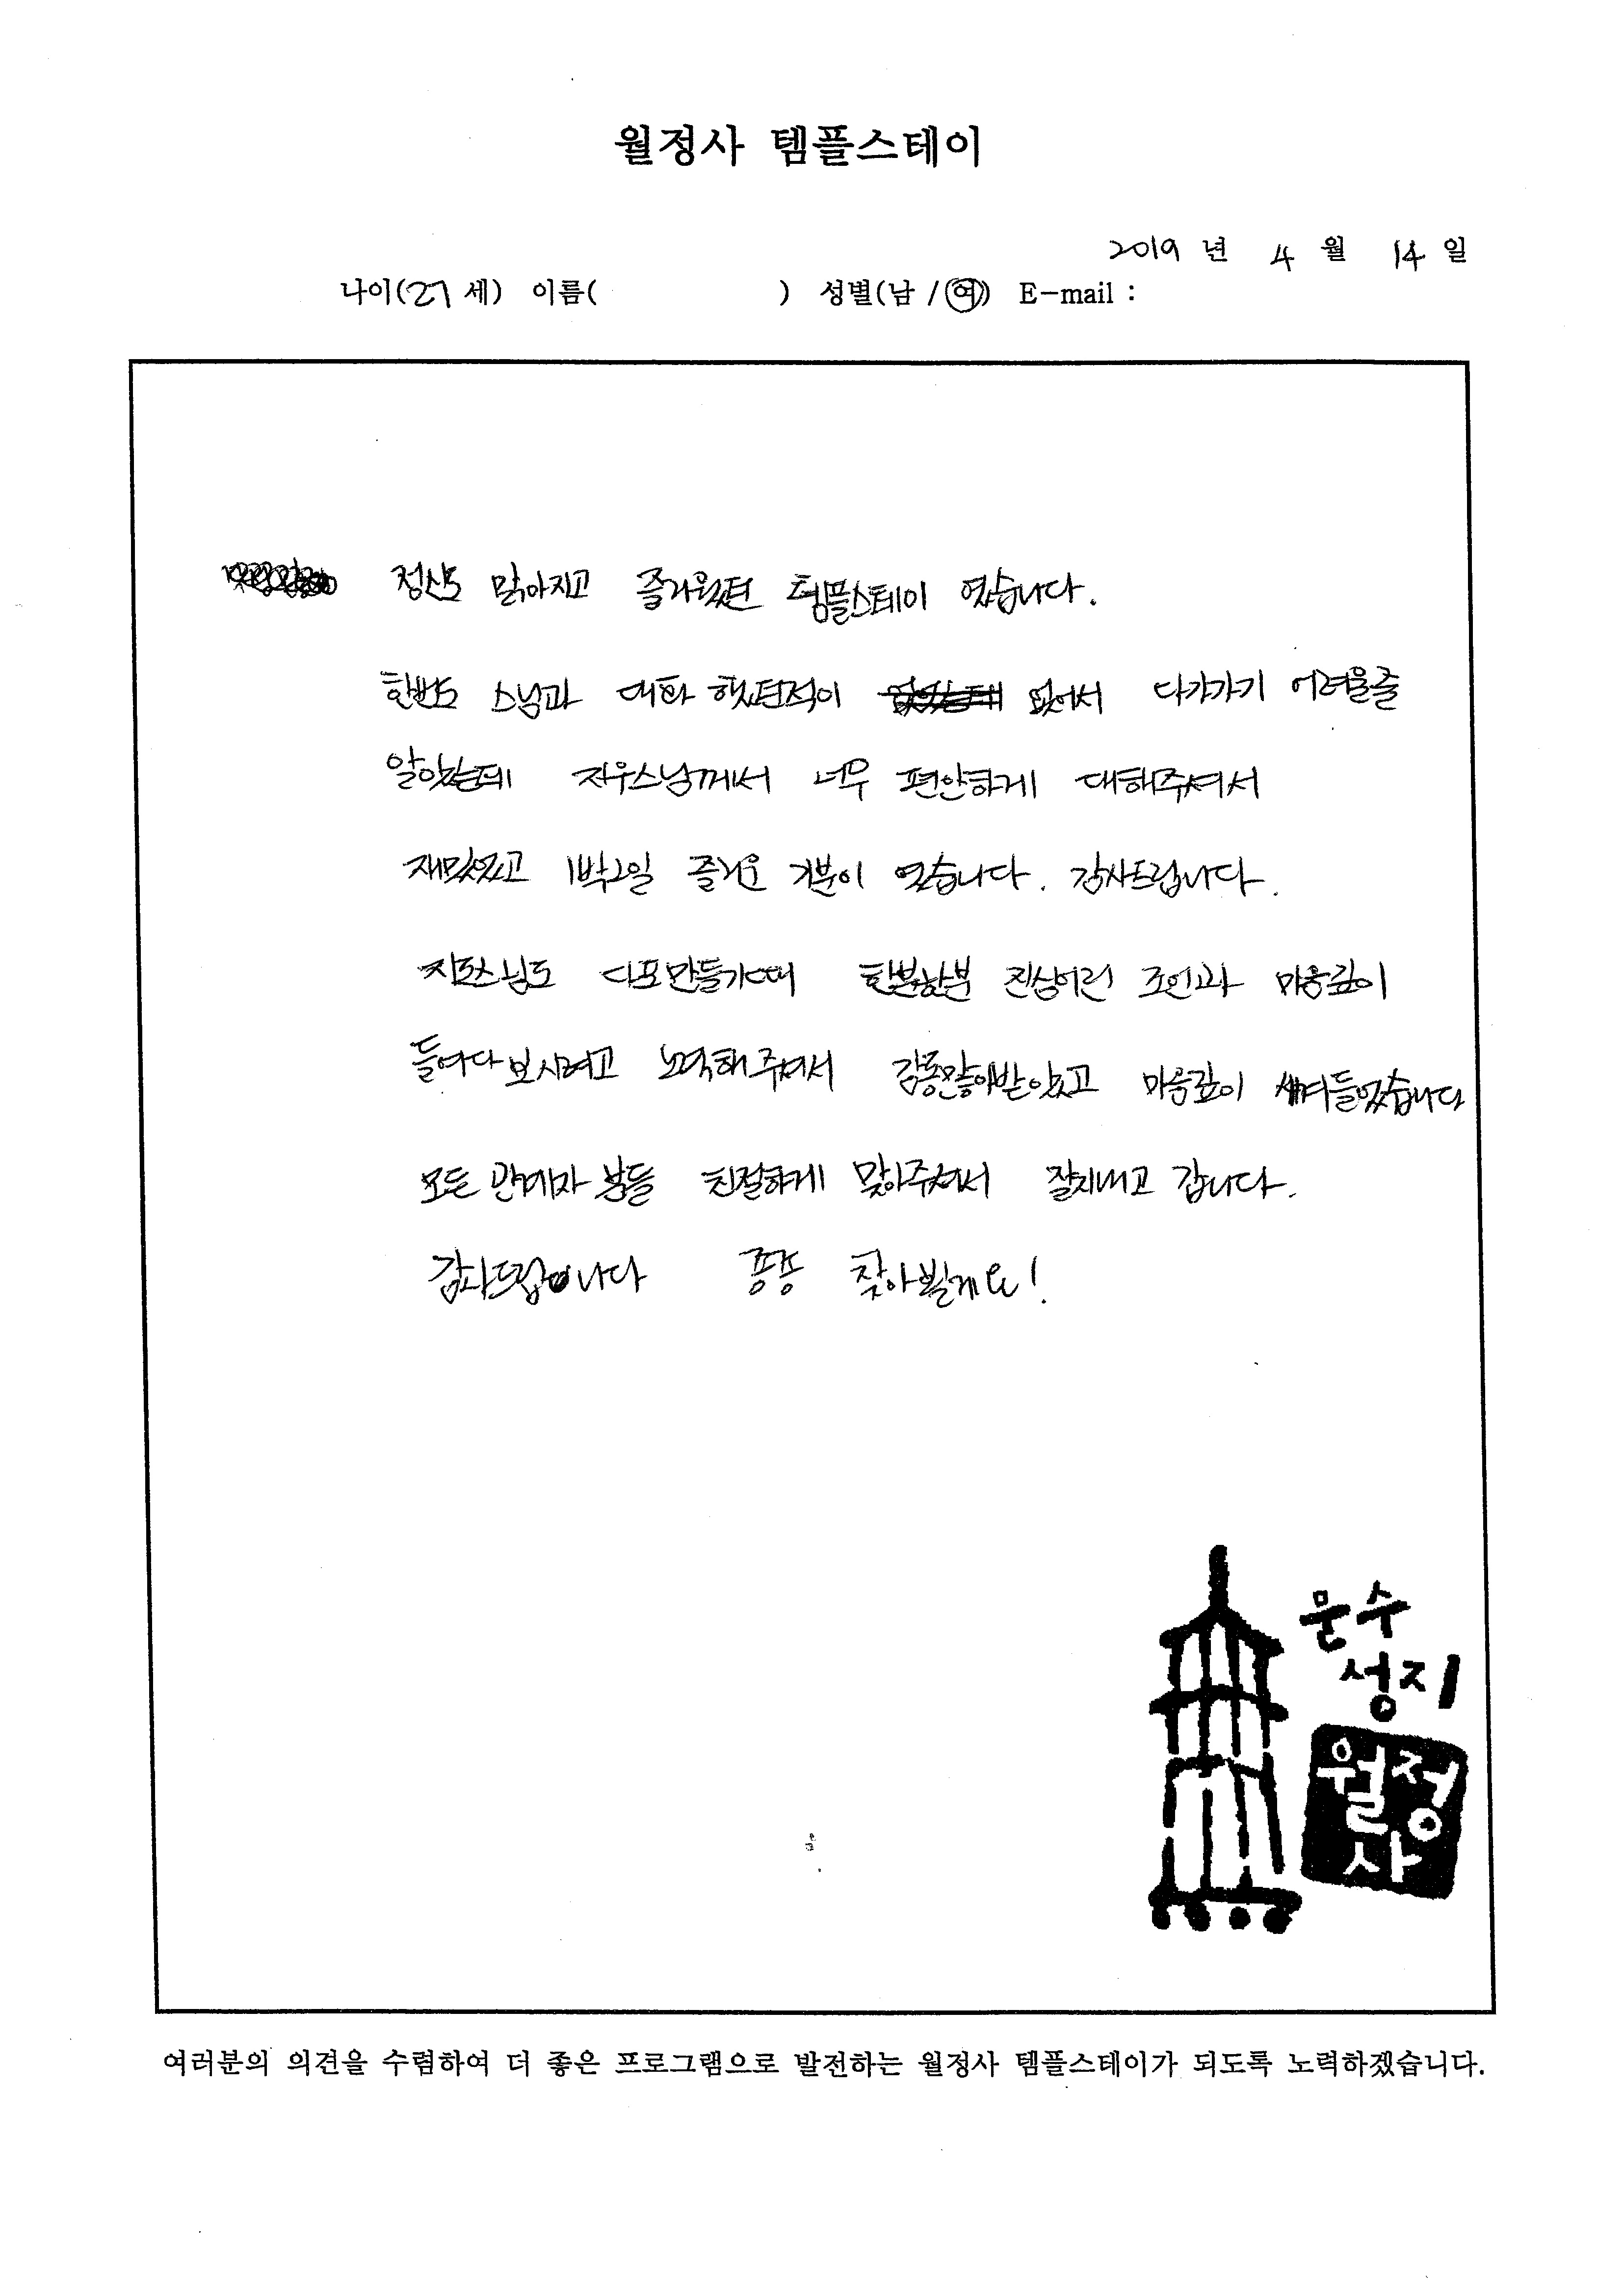 월정사 템플스테이
2019 년 4 월 14 일
나이(27 세) 이름( ) 성별(남 / 여) E-mail :
정신도 맑아지고 즐거웠던 템플스테이 였습니다.
한번도 스님과 대화 했던적이 없어서 다가가기 어려울줄
알았는데 자우스님께서 너무 편안하게 대해주셔서
재밌었고 1박2일 즐거운 기분이 였습니다. 감사드립니다.
지도스님도 다포만들기때 한분한분 진심어린 조언과 마음깊이
들여다 보시려고 노력해주셔서 감동많이받았고 마음깊이 새겨들었습니다
모든 관계자 분들 친절하게 맞아주셔서 잘지내고 갑니다.
감사드립니다 종종 찾아뵐게요!
문수
성지
월정
사
여러분의 의견을 수렴하여 더 좋은 프로그램으로 발전하는 월정사 템플스테이가 되도록 노력하겠습니다.